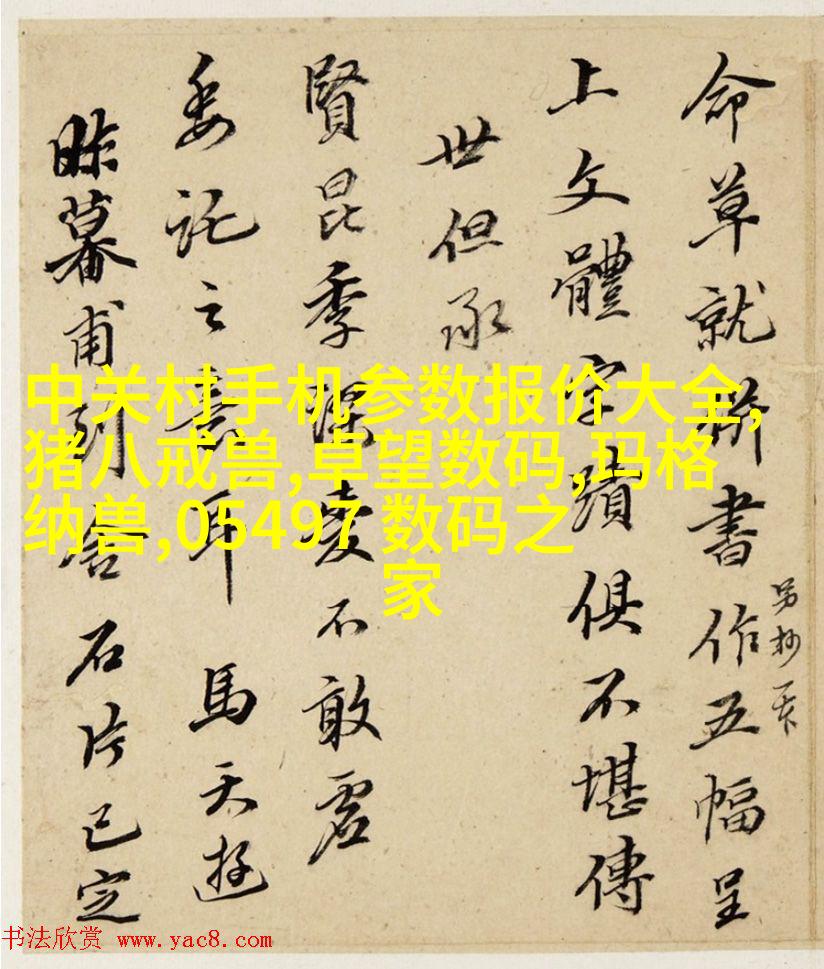 命草就, 拼書作五幅呈
另抄一本
上文體字蹟俱不堪傳
世但承
賢昆季深愛不敢虛
委託之意耳馬天游
昨暮甫到舍石片已定
中关村手机参数报价大全,
猪八戒兽,卓望数码,玛格
纳兽,05497 数码之
家
书法欣赏 www.yac8.com